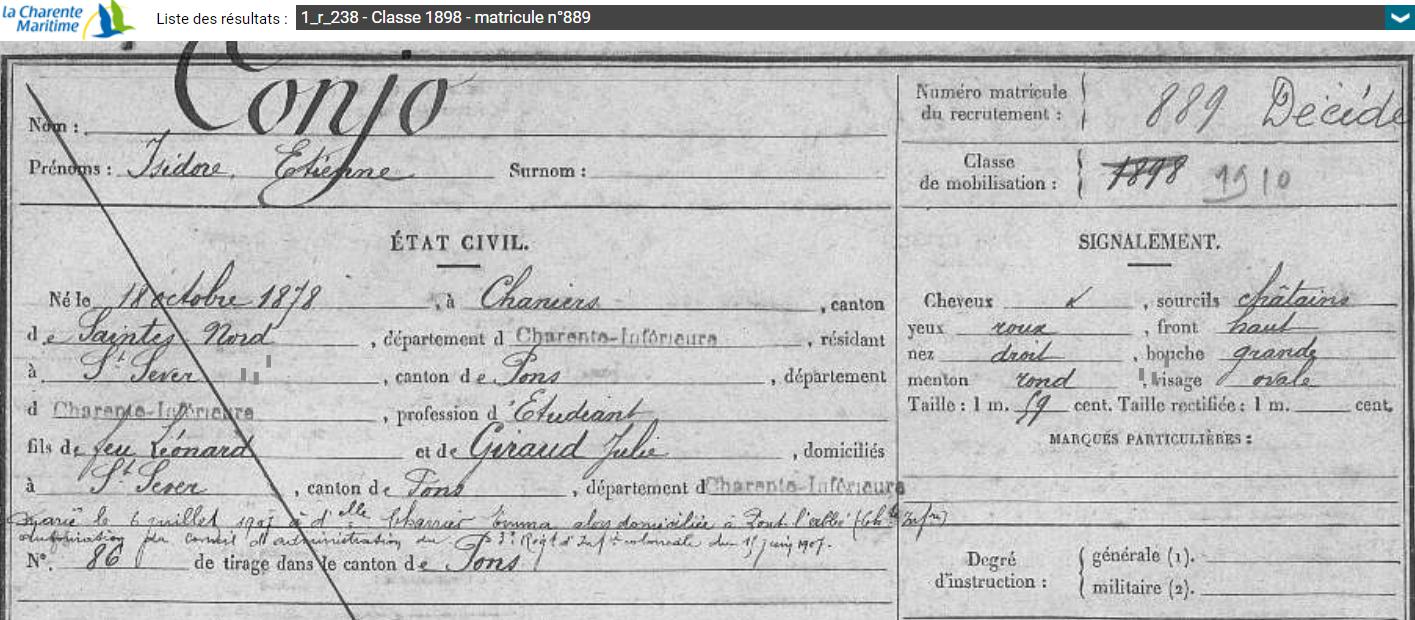 la Charente
Maritime
Liste des résultats : 1_r_238 - Classe 1898 - matricule n°889
Nom : Conjo
Prénoms : Isidore, Etienne Surnom :
Numéro matricule
du recrutement : 889 Décédé
Classe
de mobilisation : 1898 1910
ÉTAT CIVIL.
Né le 18 octobre 1878, à Chaniers, canton
de Saintes Nord, département d Charente-Inférieure, résidant
à St Sever, canton de Pons, département
d Charente-Inférieure, profession d'Etudiant
fils de feu Léonard et de Giraud Julie, domiciliés
à St Sever, canton de Pons, département d Charente-Inférieure
Marié le 6 juillet 1907 à d'elle Charrier Emma alors domiciliée à Pont l'abbé (Ch. Infre)
autorisation du conseil d'administration du 3e Régt d'Infie coloniale du 15 juin 1907.
N°. 86 de tirage dans le canton de Pons
SIGNALEMENT.
Cheveux, sourcils châtains
yeux roux, front haut
nez droit, bouche grande
menton rond, visage ovale
Taille : 1 m. 59 cent. Taille rectifiée : 1 m. cent.
MARQUES PARTICULIÈRES :
Degré
d'instruction :
générale (1).
militaire (2).